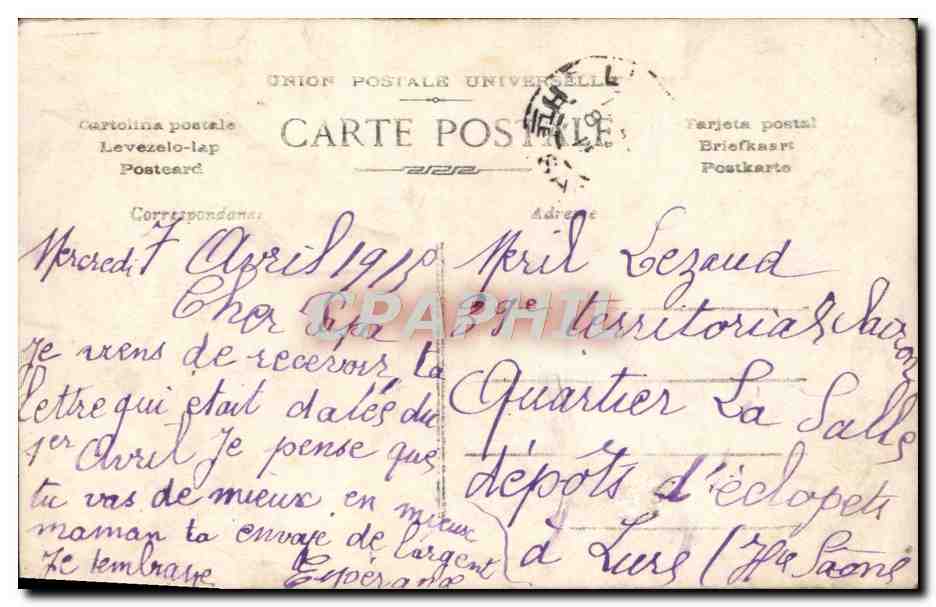 UNION POSTALE UNIVERSELLE
CARTE POSTALE
Cartolina postale
Levezelo-lap
Postcard
Tarjeta postal
Briefkaart
Postkarte
Correspondance
Mercredi 7 Avril 1915
Cher Papa
Je viens de recevoir ta
lettre qui était datée du
1er Avril Je pense que
tu vas de mieux en mieux
maman ta envoie de l'argent
Je tembrasse
Adresse
Lezaud
territorial
Quartier La Salle
dépôts d'éclopés
à Lure (Hte Saône
CRAPHIL